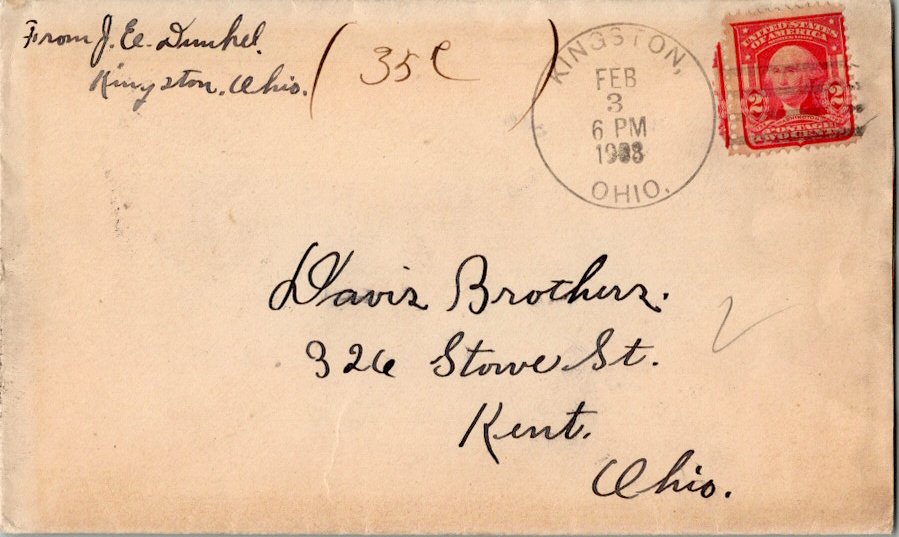 From J. E. Dunkel.
Kingston, Ohio.
(35¢)
KINGSTON,
FEB
3
6 PM
1908
OHIO.
UNITED STATES
OF AMERICA
2 2
POSTAGE
TWO CENTS
Davis Brothers.
326 Stowe St.
Kent.
Ohio.